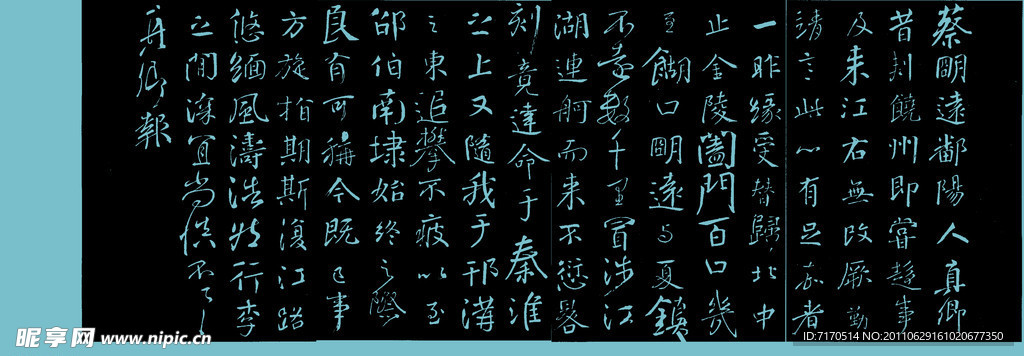 蔡明遠鄱陽人真卿
昔刾饒州即嘗趍事
及来江右無改厥勤
靖言此心有足嘉者
一昨緣受替歸北中
止金陵闔門百口幾
至餬口明遠与夏鎮
不遠數千里冒涉江
湖連舸而来不愆晷
刻竟達命于秦淮
之上又隨我于邗溝
之東追攀不疲以至
邵伯南埭始終之際
良有可稱今既已事
方旋指期斯復江路
悠緬風濤浩然行李
之間深宜尚慎不一一
真卿報
昵享网 www.nipic.cn
ID:7170514 NO:20110629161020677350